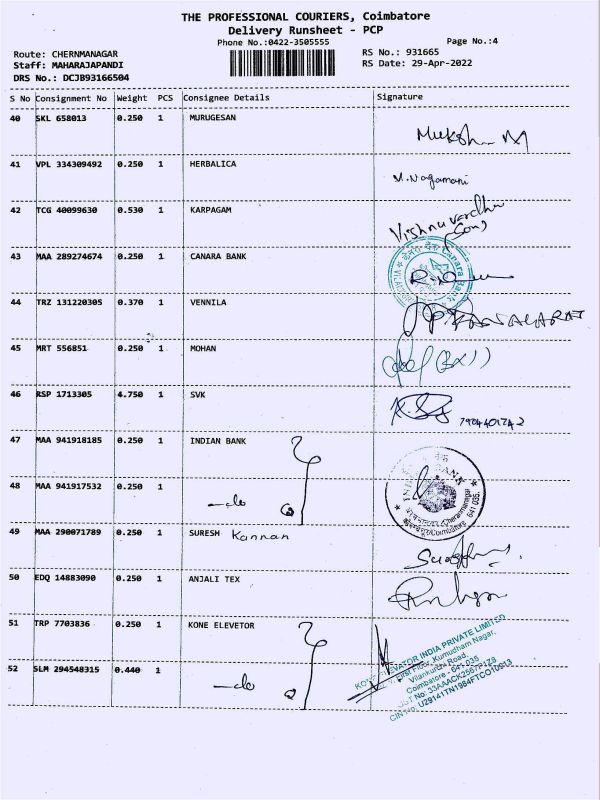 THE PROFESSIONAL COURIERS, Coimbatore
Delivery Runsheet - PCP
Phone No.:0422-3505555
Page No.:4
Route: CHERNMANAGAR
Staff: MAHARAJAPANDI
DRS No.: DCJB93166504
RS No.: 931665
RS Date: 29-Apr-2022
S No Consignment No Weight PCS Consignee Details Signature
40 SKL 658013 0.250 1 MURUGESAN
41 VPL 334309492 0.250 1 HERBALICA M.Nagamani
42 TCG 40099630 0.530 1 KARPAGAM Vishnuvardha
43 MAA 289274674 0.250 1 CANARA BANK
Canara Bank
44 TRZ 131220305 0.370 1 VENNILA
45 MRT 556851 0.250 1 MOHAN
46 RSP 1713305 4.750 1 SVK
47 MAA 941918185 0.250 1 INDIAN BANK
48 MAA 941917532 0.250 1 -do
INDIAN BANK
Coimbatore 641 035.
49 MAA 290071789 0.250 1 SURESH Kannan
50 EDQ 14883090 0.250 1 ANJALI TEX
51 TRP 7703836 0.250 1 KONE ELEVETOR
52 SLM 294548315 0.440 1 -do
KONE ELEVATOR INDIA PRIVATE LIMITED
Kumudham Nagar,
Vilankurichi Road,
Coimbatore - 641 035